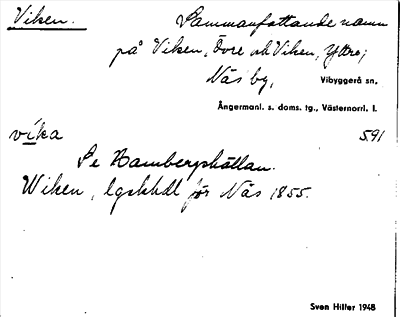 Viken. Sammanfattande namn
på Viken, Övre och Viken, Yttre;
Näs by, Vibyggerå sn.
Ångermanl. s. doms. tg., Västernorrl. l.
vika 591
Se Hambergshällan.
Wiken, lgskhdl för Näs 1855.
Sven Hiller 1948